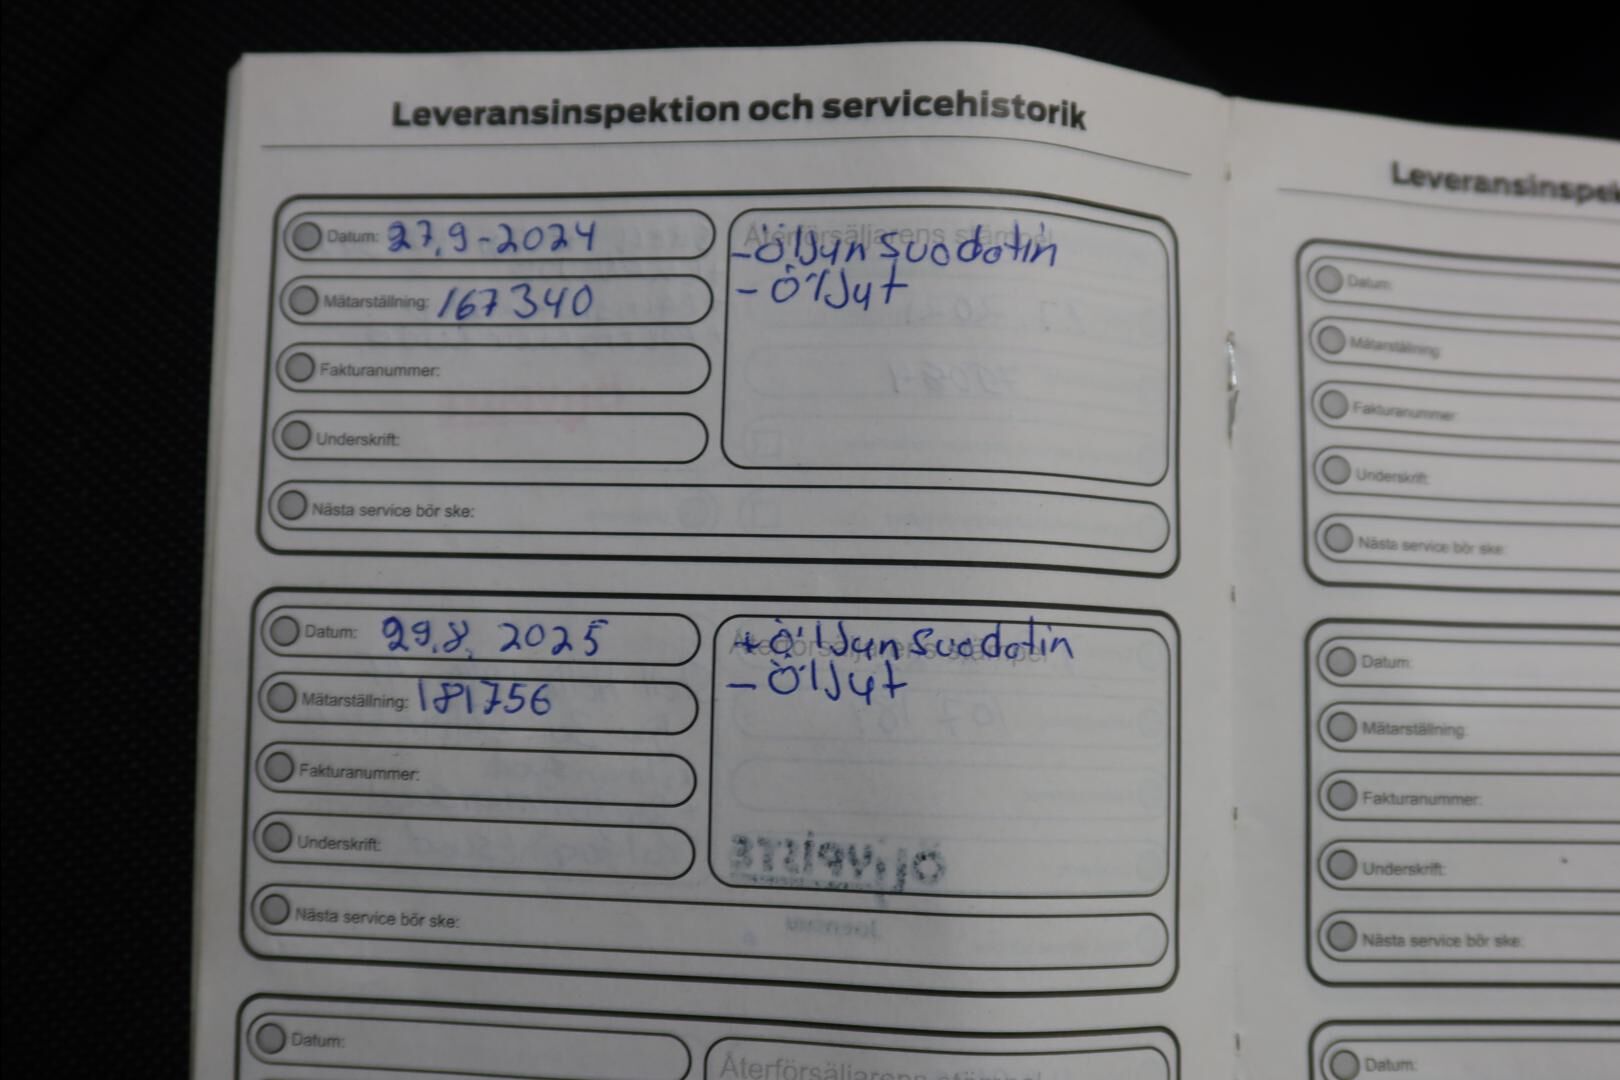 Leveransinspektion och servicehistorik
Datum: 27.9-2024
Mätarställning: 167340
Fakturanummer:
Underskrift:
Nästa service bör ske:
Återförsäljarens stämpel
-Öljynsuodatin
- Öljyt
Datum: 29.8. 2025
Mätarställning: 181756
Fakturanummer:
Underskrift:
Nästa service bör ske:
Återförsäljarens stämpel
-Öljynsuodatin
- Öljyt
Datum:
Återförsäljarens stämpel
Leveransinspek
Datum:
Mätarställning:
Fakturanummer:
Underskrift:
Nästa service bör ske:
Datum:
Mätarställning:
Fakturanummer:
Underskrift:
Nästa service bör ske:
Datum: